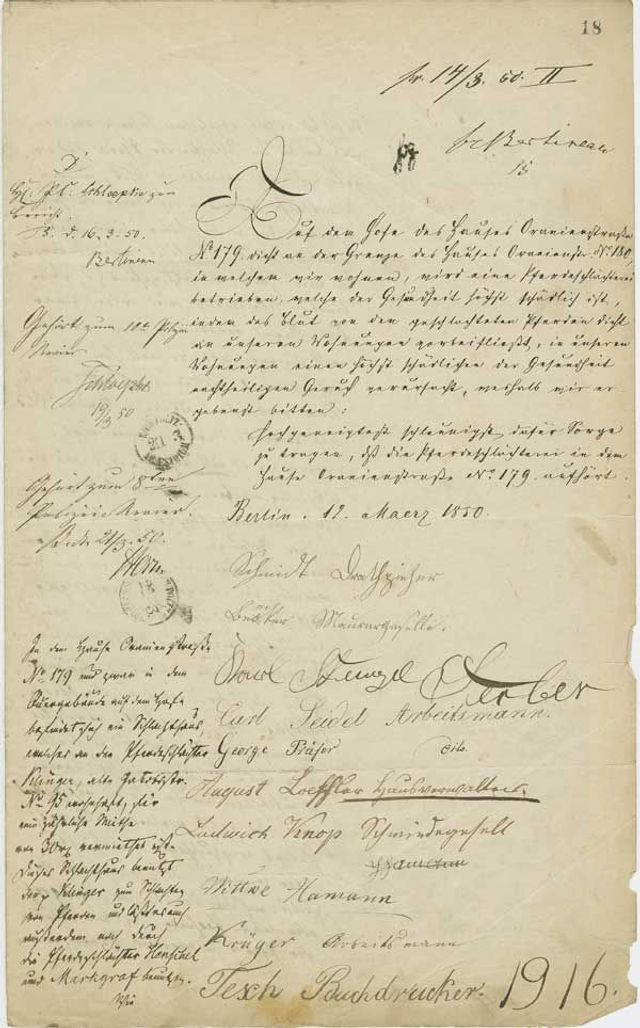 18
pr. 14/3. 50. II
Bertineau
15
Pl. Schloepke zum
Bericht.
B. d. 16. 3. 50.
Bertineau
Gehört zum 10t Polizei
Revier
Schloepke
19/3 50
Gehört zum 8ten
Polizei Revier.
21/3. 50.
Auf dem Hofe des Hauses Oranienstraße
No 179, dicht an der Grenze des Hauses Oranienstr. No 180,
in welchem wir wohnen, wird eine Pferdeschlachterei
betrieben, welche der Gesundheit höchst schädlich ist,
indem das Blut von den geschlachteten Pferden dicht
an unseren Wohnungen vorbeifließt, in unseren
Wohnungen einen höchst schädlichen der Gesundheit
nachtheiligen Geruch verursacht, weshalb wir er-
gebenst bitten:
Hochgeneigtest schleunigst dafür Sorge
zu tragen, daß die Pferdeschlächterei in dem
Hause Oranienstraße No 179 aufhört.
Berlin. 12. Maerz 1850.
Schmidt Drathzieher
Maurergeselle.
Karl Stengel Gerber
Carl Seidel Arbeitsmann.
George Präfer dito.
August Loeffler Hausverwalter.
Ludwich Knop Schmiedegesell
Wittwe Hamann
Krüger Arbeitsmann
Tesch Buchdrucker.
1916.
In dem Hause Oranienstraße
No 179 und zwar in dem
Quergebäude auf dem Hofe
befindet sich ein Schlachthaus,
welches an den Pferdeschlächter
Klinger, alte Jakobstr.
No 95 wohnhaft, für
eine jährliche Miethe
von 30 rt vermiethet ist.
Dieses Schlachthaus benutzt
der p Klinger zum Schlachten
von Pferden und läßt es auch
außerdem noch durch
die Pferdeschlächter Henschel
und Markgraf benutzen.
Die